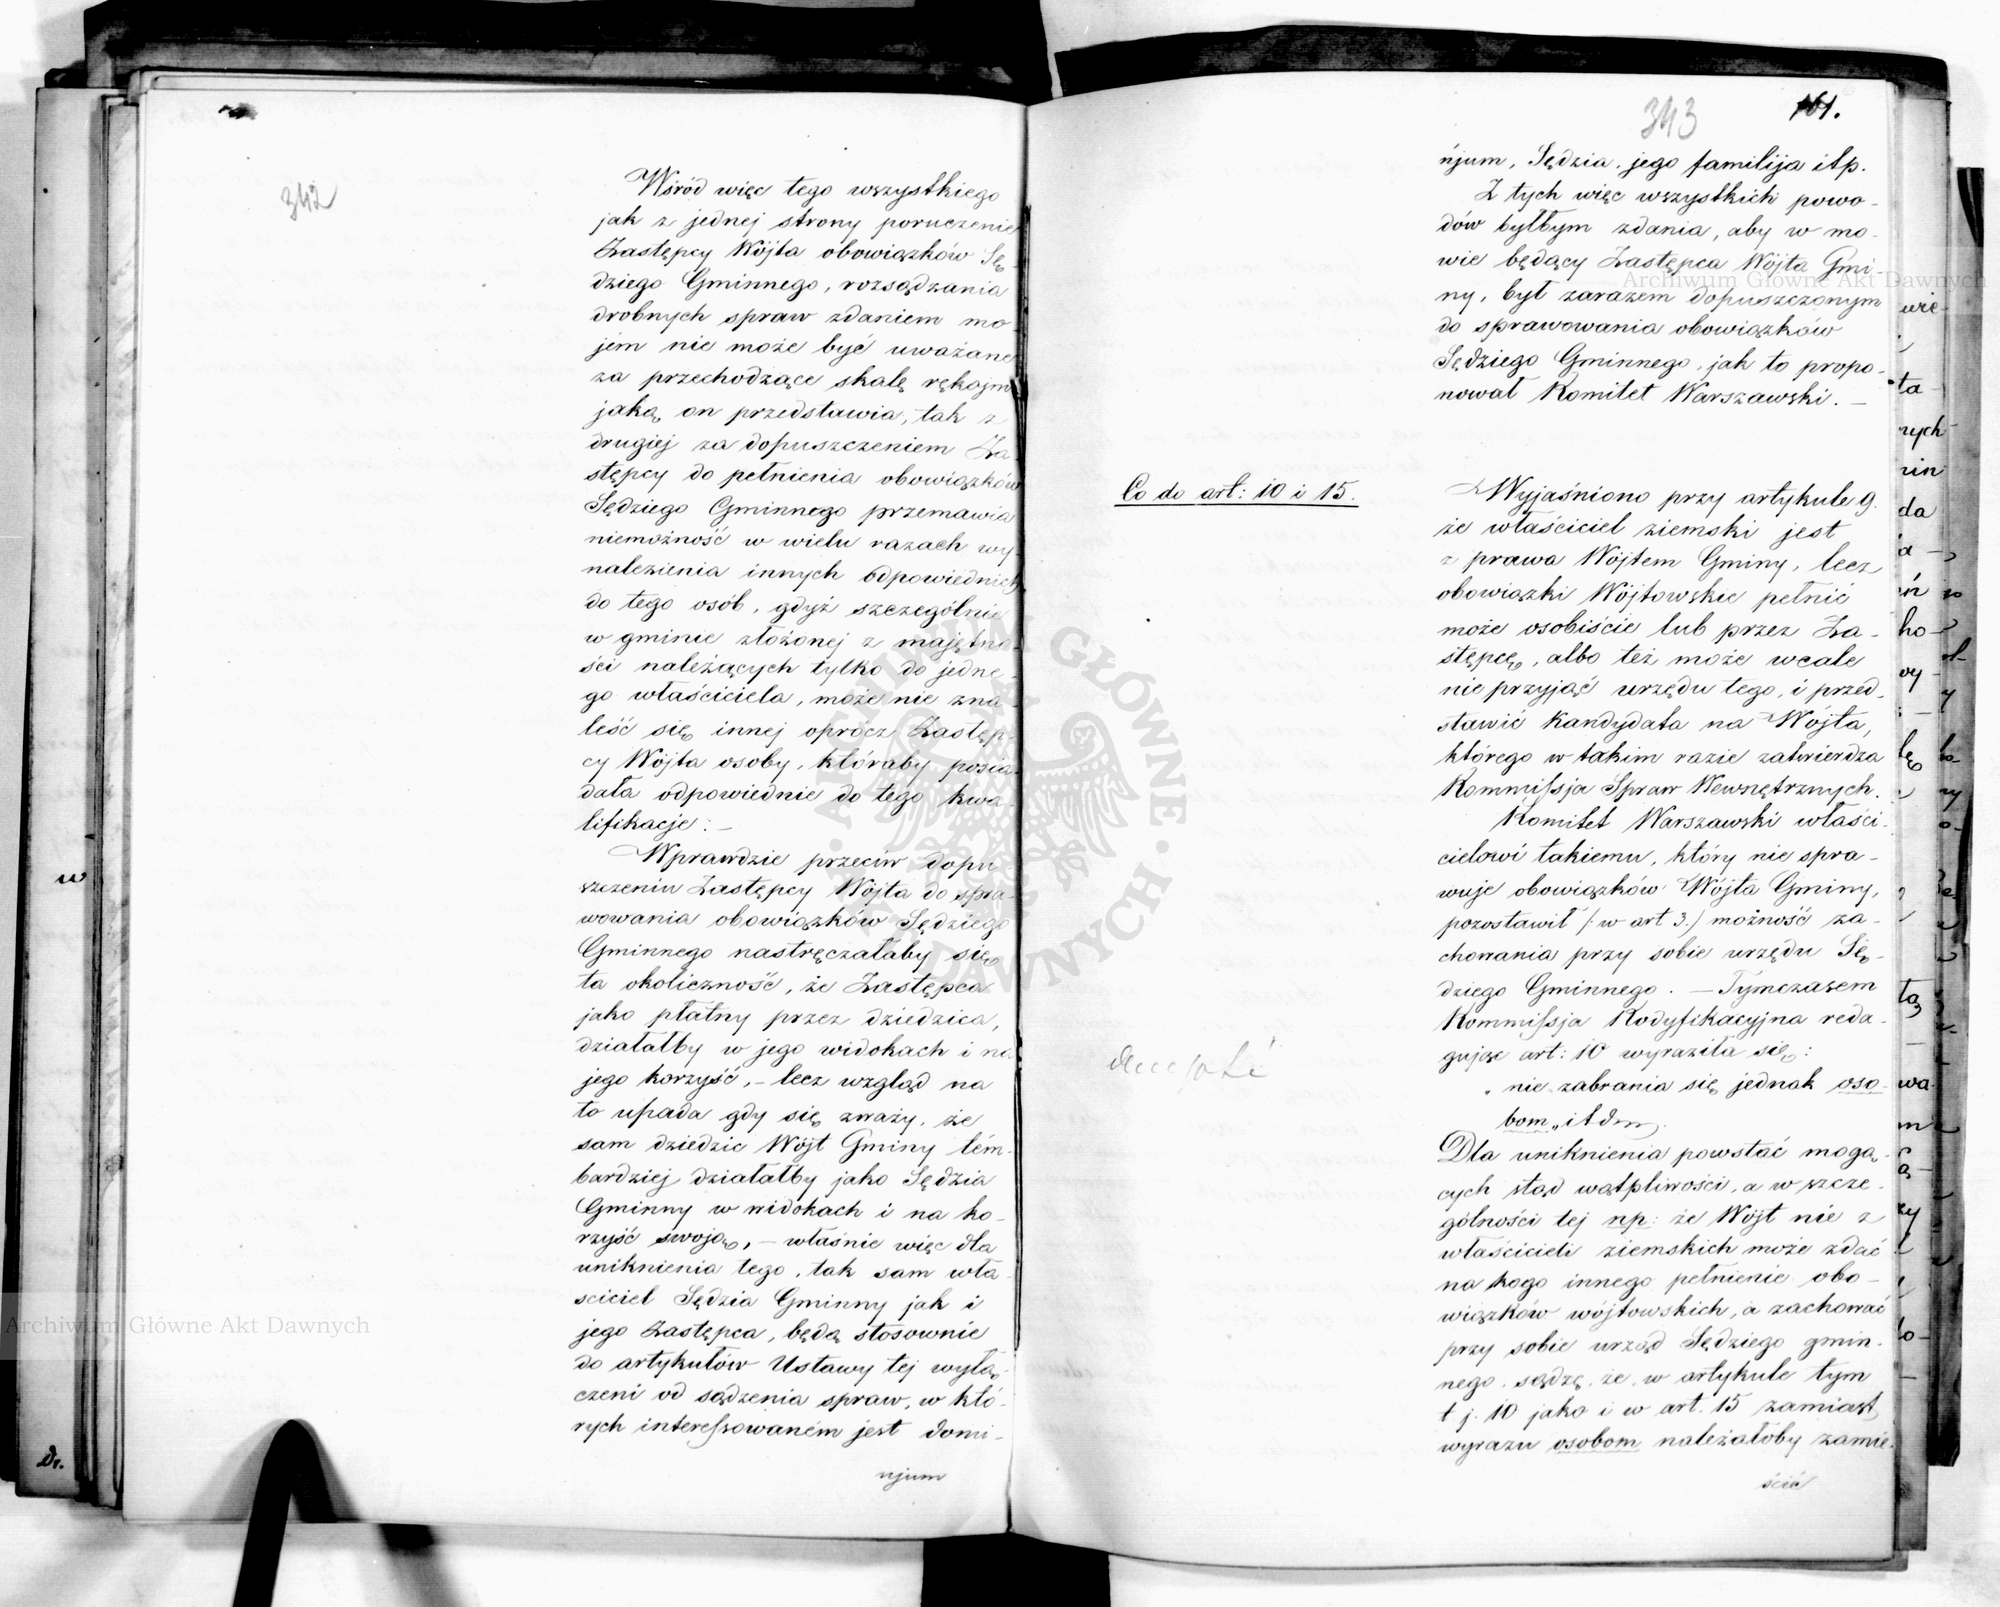 342
Wśród więc tego wszystkiego
jak z jednej strony poruczenie
Zastępcy Wójta obowiązków Sę-
dziego Gminnego, rozsądzania
drobnych spraw zdaniem mo
jem nie może być uważane
za przechodzące skalę rękojmi
jaką on przedstawia, tak z
drugiej za dopuszczeniem Za-
stępcy do pełnienia obowiązków
Sędziego Gminnego przemawia
niemożność w wielu razach wy-
nalezienia innych odpowiednich
do tego osób, gdyż szczególnie
w gminie złożonej z majętno-
ści należących tylko do jedne-
go właściciela, może nie zna-
leść się innej oprócz Zastęp-
cy Wójta osoby, któraby posia-
dała odpowiednie do tego kwa-
lifikacje. –
Wprawdzie przeciw dopu
szczeniu Zastępcy Wójta do spra-
wowania obowiązków Sędziego
Gminnego nastręczałaby się
ta okoliczność, że Zastępca
jako płatny przez dziedzica,
działałby w jego widokach i na
jego korzyść, – lecz wzgląd na
to upada gdy się zważy, że
sam dziedzic Wójt Gminy tém-
bardziej działałby jako Sędzia
Gminny w widokach i na ko-
rzyść swoją, – właśnie więc dla
uniknienia tego, tak sam wła-
sciciel Sędzia Gminny jak i
jego Zastępca, będą stosownie
do artykułów Ustawy tej wyłą-
czeni od sądzenia spraw, w któ-
rych interessowaném jest domi-
njum
343
161.
njum, Sędzia, jego familija itp.
Z tych więc wszystkich powo-
dów byłbym zdania, aby w mo-
wie będący Zastępca Wójta Gmi-
ny, był zarazem dopuszczonym
do sprawowania obowiązków
Sędziego Gminnego, jak to propo-
nował Komitet Warszawski. –
Co do art: 10 i 15.
Wyjaśniono przy artykule 9.
że właściciel ziemski jest
z prawa Wójtem Gminy, lecz
obowiązki Wójtowskie pełnić
może osobiście lub przez Za-
stępcę, albo też może wcale
nie przyjąć urzędu tego, i przed-
stawić Kandydata na Wójta,
którego w takim razie zatwierdza
Kommissja Spraw Wewnętrznych.
Komitet Warszawski właści-
cielowi takiemu, który nie spra-
wuje obowiązków Wójta Gminy,
pozostawił /: w art 3./ możność za-
chowania przy sobie urzędu Sę-
dziego Gminnego. – Tymczasem
Kommissja Kodyfikacyjna reda-
gując art: 10 wyraziła się:
„nie zabrania się jednak oso-
bom„ itdm.
Dla uniknienia powstać mogą-
cych stąd wątpliwości, a w szcze-
gólności tej np: że Wójt nie z
właścicieli ziemskich może zdać
na kogo innego pełnienie obo-
wiązków wójtowskich, a zachować
przy sobie urząd Sędziego gmin-
nego, sądzę, że w artykule tym
t j. 10 jako i w art. 15 zamiast
wyrazu osobom należałoby zamie-
ścić
Archiwum Główne Akt Dawnych
Archiwum Główne Akt Dawnych
ARCHIWUM GŁÓWNE AKT DAWNYCH